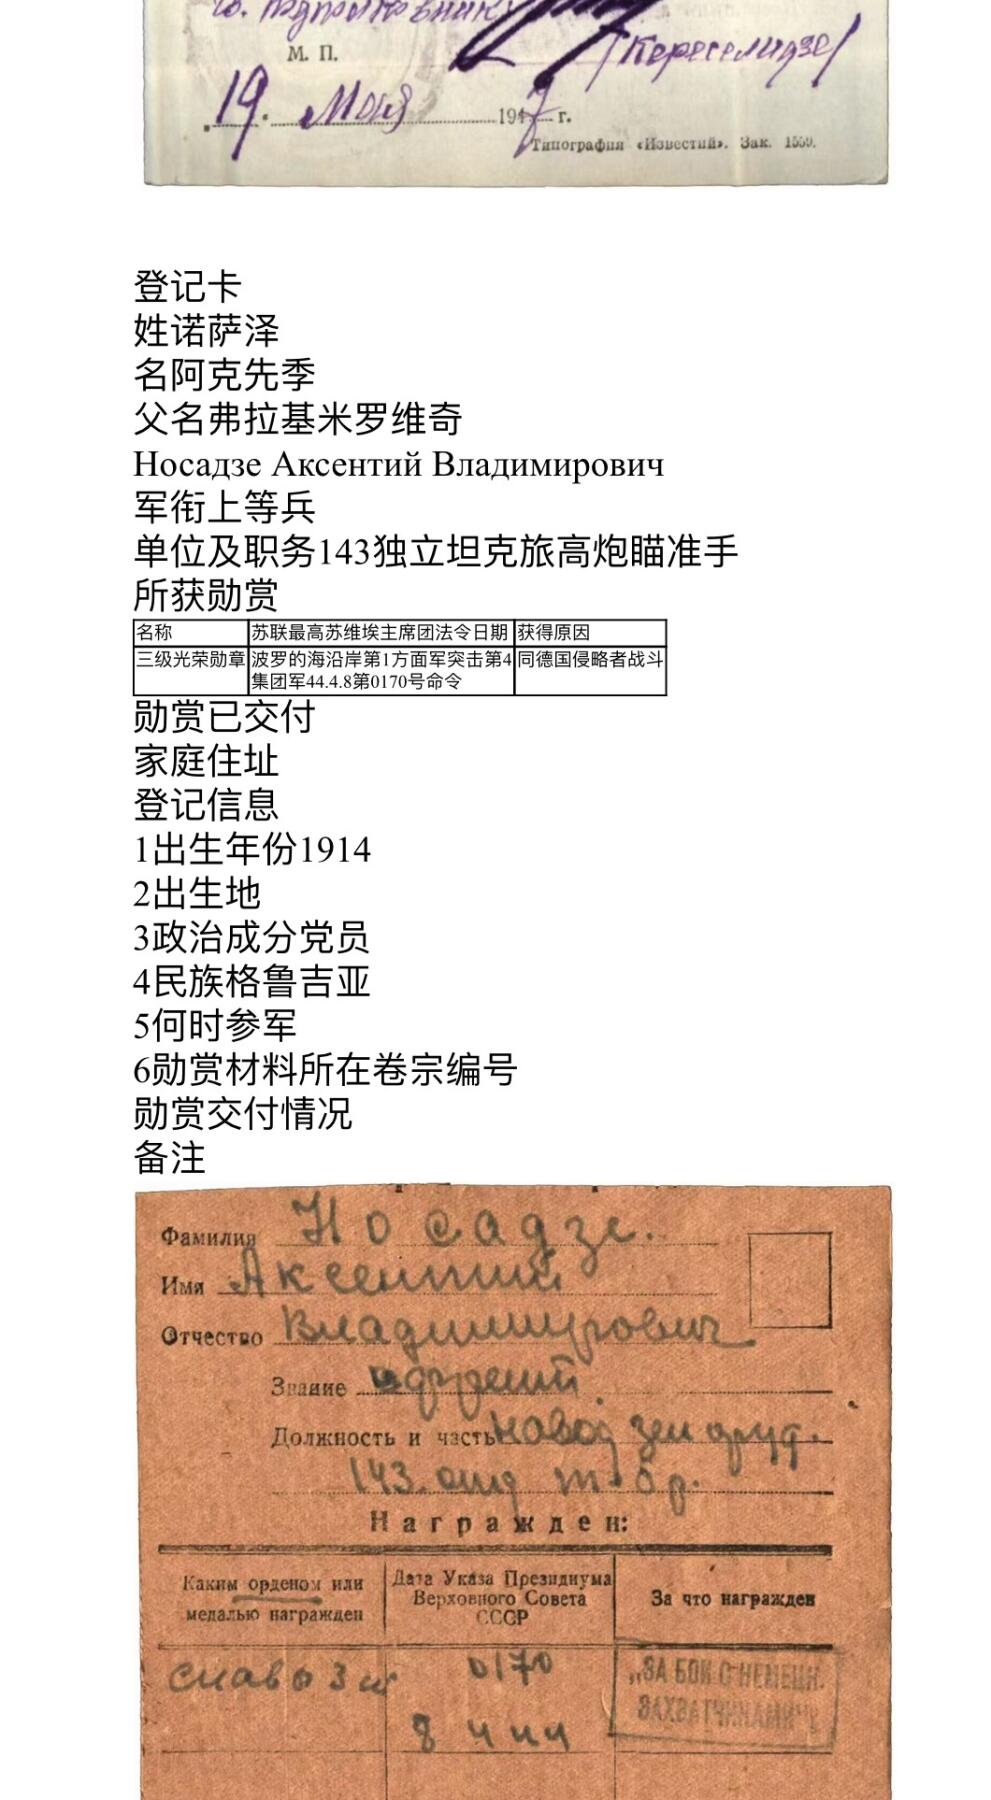 М. П.
/Кереселидзе/
„19“ Мая 1947 г.
Типография «Известий». Зак. 1559.
登记卡
姓诺萨泽
名阿克先季
父名弗拉基米罗维奇
Носадзе Аксентий Владимирович
军衔上等兵
单位及职务143独立坦克旅高炮瞄准手
所获勋赏
名称 苏联最高苏维埃主席团法令日期 获得原因
三级光荣勋章 波罗的海沿岸第1方面军突击第4 同德国侵略者战斗
集团军44.4.8第0170号命令
勋赏已交付
家庭住址
登记信息
1出生年份1914
2出生地
3政治成分党员
4民族格鲁吉亚
5何时参军
6勋赏材料所在卷宗编号
勋赏交付情况
备注
Фамилия Носадзе.
Имя Аксентий
Отчество Владимирович
Звание
Должность и часть
143. отд т. бр.
Награжден:
Каким орденом или Дата Указа Президиума За что награжден
медалью награжден Верховного Совета
СССР
слава 3 0170 „ЗА БОИ С НЕМЕЦК.
8 4 44 ЗАХВАТЧИКАМИ“